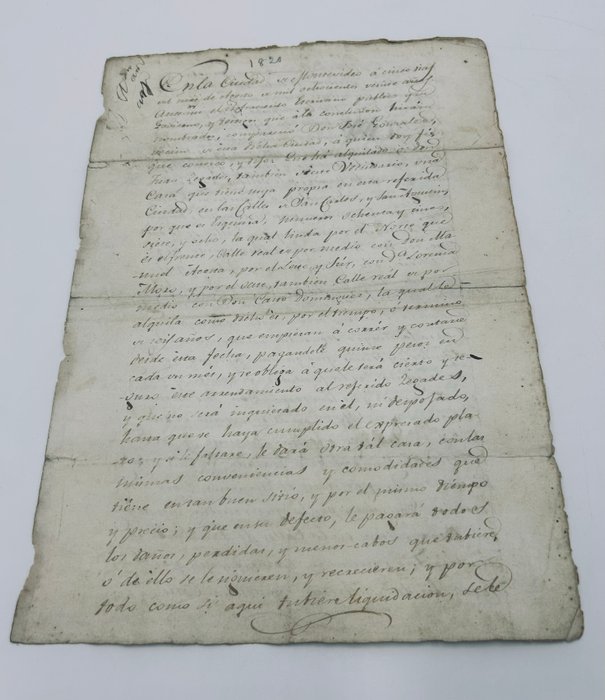 1820
En la Ciudad de Montevideo á cinco dias
del mes de de mil ochocientos veinte años
Antemi el Escrivano publico
y testigos que á la conclusion irán
nombrados, comparecio Don José Gonzales,
vecino de esta dicha Ciudad, á quien doy fé
que conosco, y dijo: Que há alquilado a Don
Juan tambien de este Vecindario, una
Casa que tiene suya propia en esta referida
Ciudad, en las Calles de San Carlos, y San
por que es Esquina, numeros ochenta y
siete, y ocho, la qual linda por el Norte que
es el frente, Calle real de por medio con Don Ma
nuel por el y Sur, con Dª Lorenza
y por el tambien Calle real de por
medio con Don Dominguez, la qual le
alquila como dicha es, por el tiempo, o termino
de años, que empiezan á correr y contarse
desde esta fecha, pagandole quince pesos en
cada un mes, y se obliga á que le será cierto y se
guro este arrendamiento al referido
y que no será inquietado en el, ni despojado,
hasta que se haya cumplido el expresado pla
zo; y si le faltare, le dará otra tál casa, con las
mismas conveniencias y comodidades que
tiene en tan buen sitio, y por el mismo tiempo
y precio; y que en su defecto, le pagará todos
los daños, perdidas, y menos-cabos que tubiere,
ó de ello se le siguieren, y recrecieren; y por
todo como si aqui tubiera liquidacion, se le